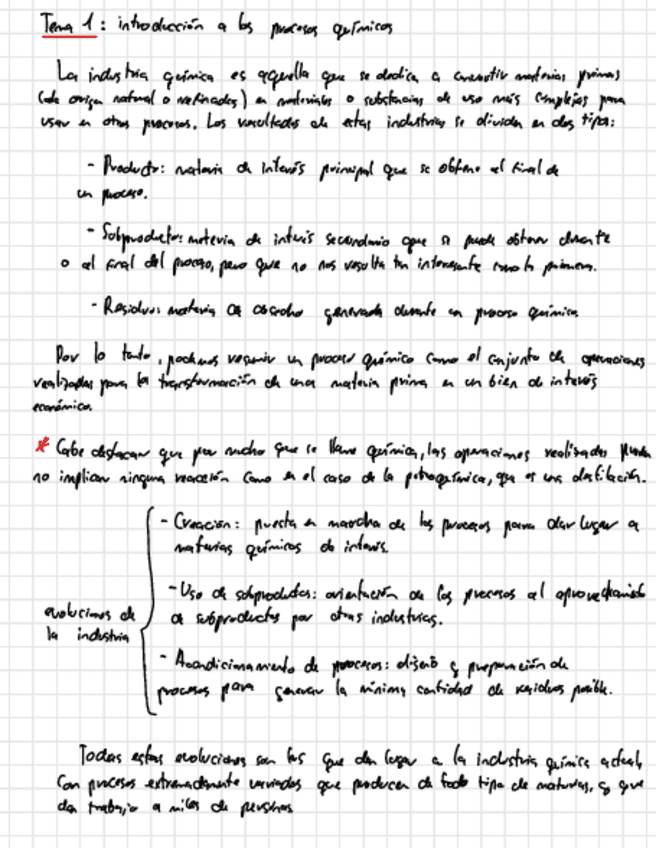 Tema 1: introducción a los procesos químicos
La industria química es aquella que se dedica a convertir materias primas
(de origen natural o refinados) en materiales o substancias de uso más complejas para
usar en otros procesos. Los resultados de estas industrias se dividen en dos tipos:
- Producto: materia de interés principal que se obtiene al final de
un proceso.
- Subproducto: materia de interés secundario que se puede obtener durante
o al final del proceso, pero que no nos resulta tan interesante como la primera.
- Residuo: materia de desecho generada durante un proceso químico.
Por lo tanto, podemos resumir un proceso químico como el conjunto de operaciones
realizadas para la transformación de una materia prima en un bien de interés
económico.
* Cabe destacar que por mucho que se llame química, las operaciones realizadas pueden
no implicar ninguna reacción como en el caso de la petroquímica, que es una destilación.
evoluciones de
la industria
- Creación: puesta en marcha de los procesos para dar lugar a
materias químicas de interés.
- Uso de subproductos: orientación de los procesos al aprovechamiento
de subproductos por otras industrias.
- Acondicionamiento de procesos: diseño y preparación de
procesos para generar la mínima cantidad de residuos posible.
Todas estas evoluciones son las que dan lugar a la industria química actual,
con procesos extremadamente variados que producen de todo tipo de materias, y que
da trabajo a miles de personas